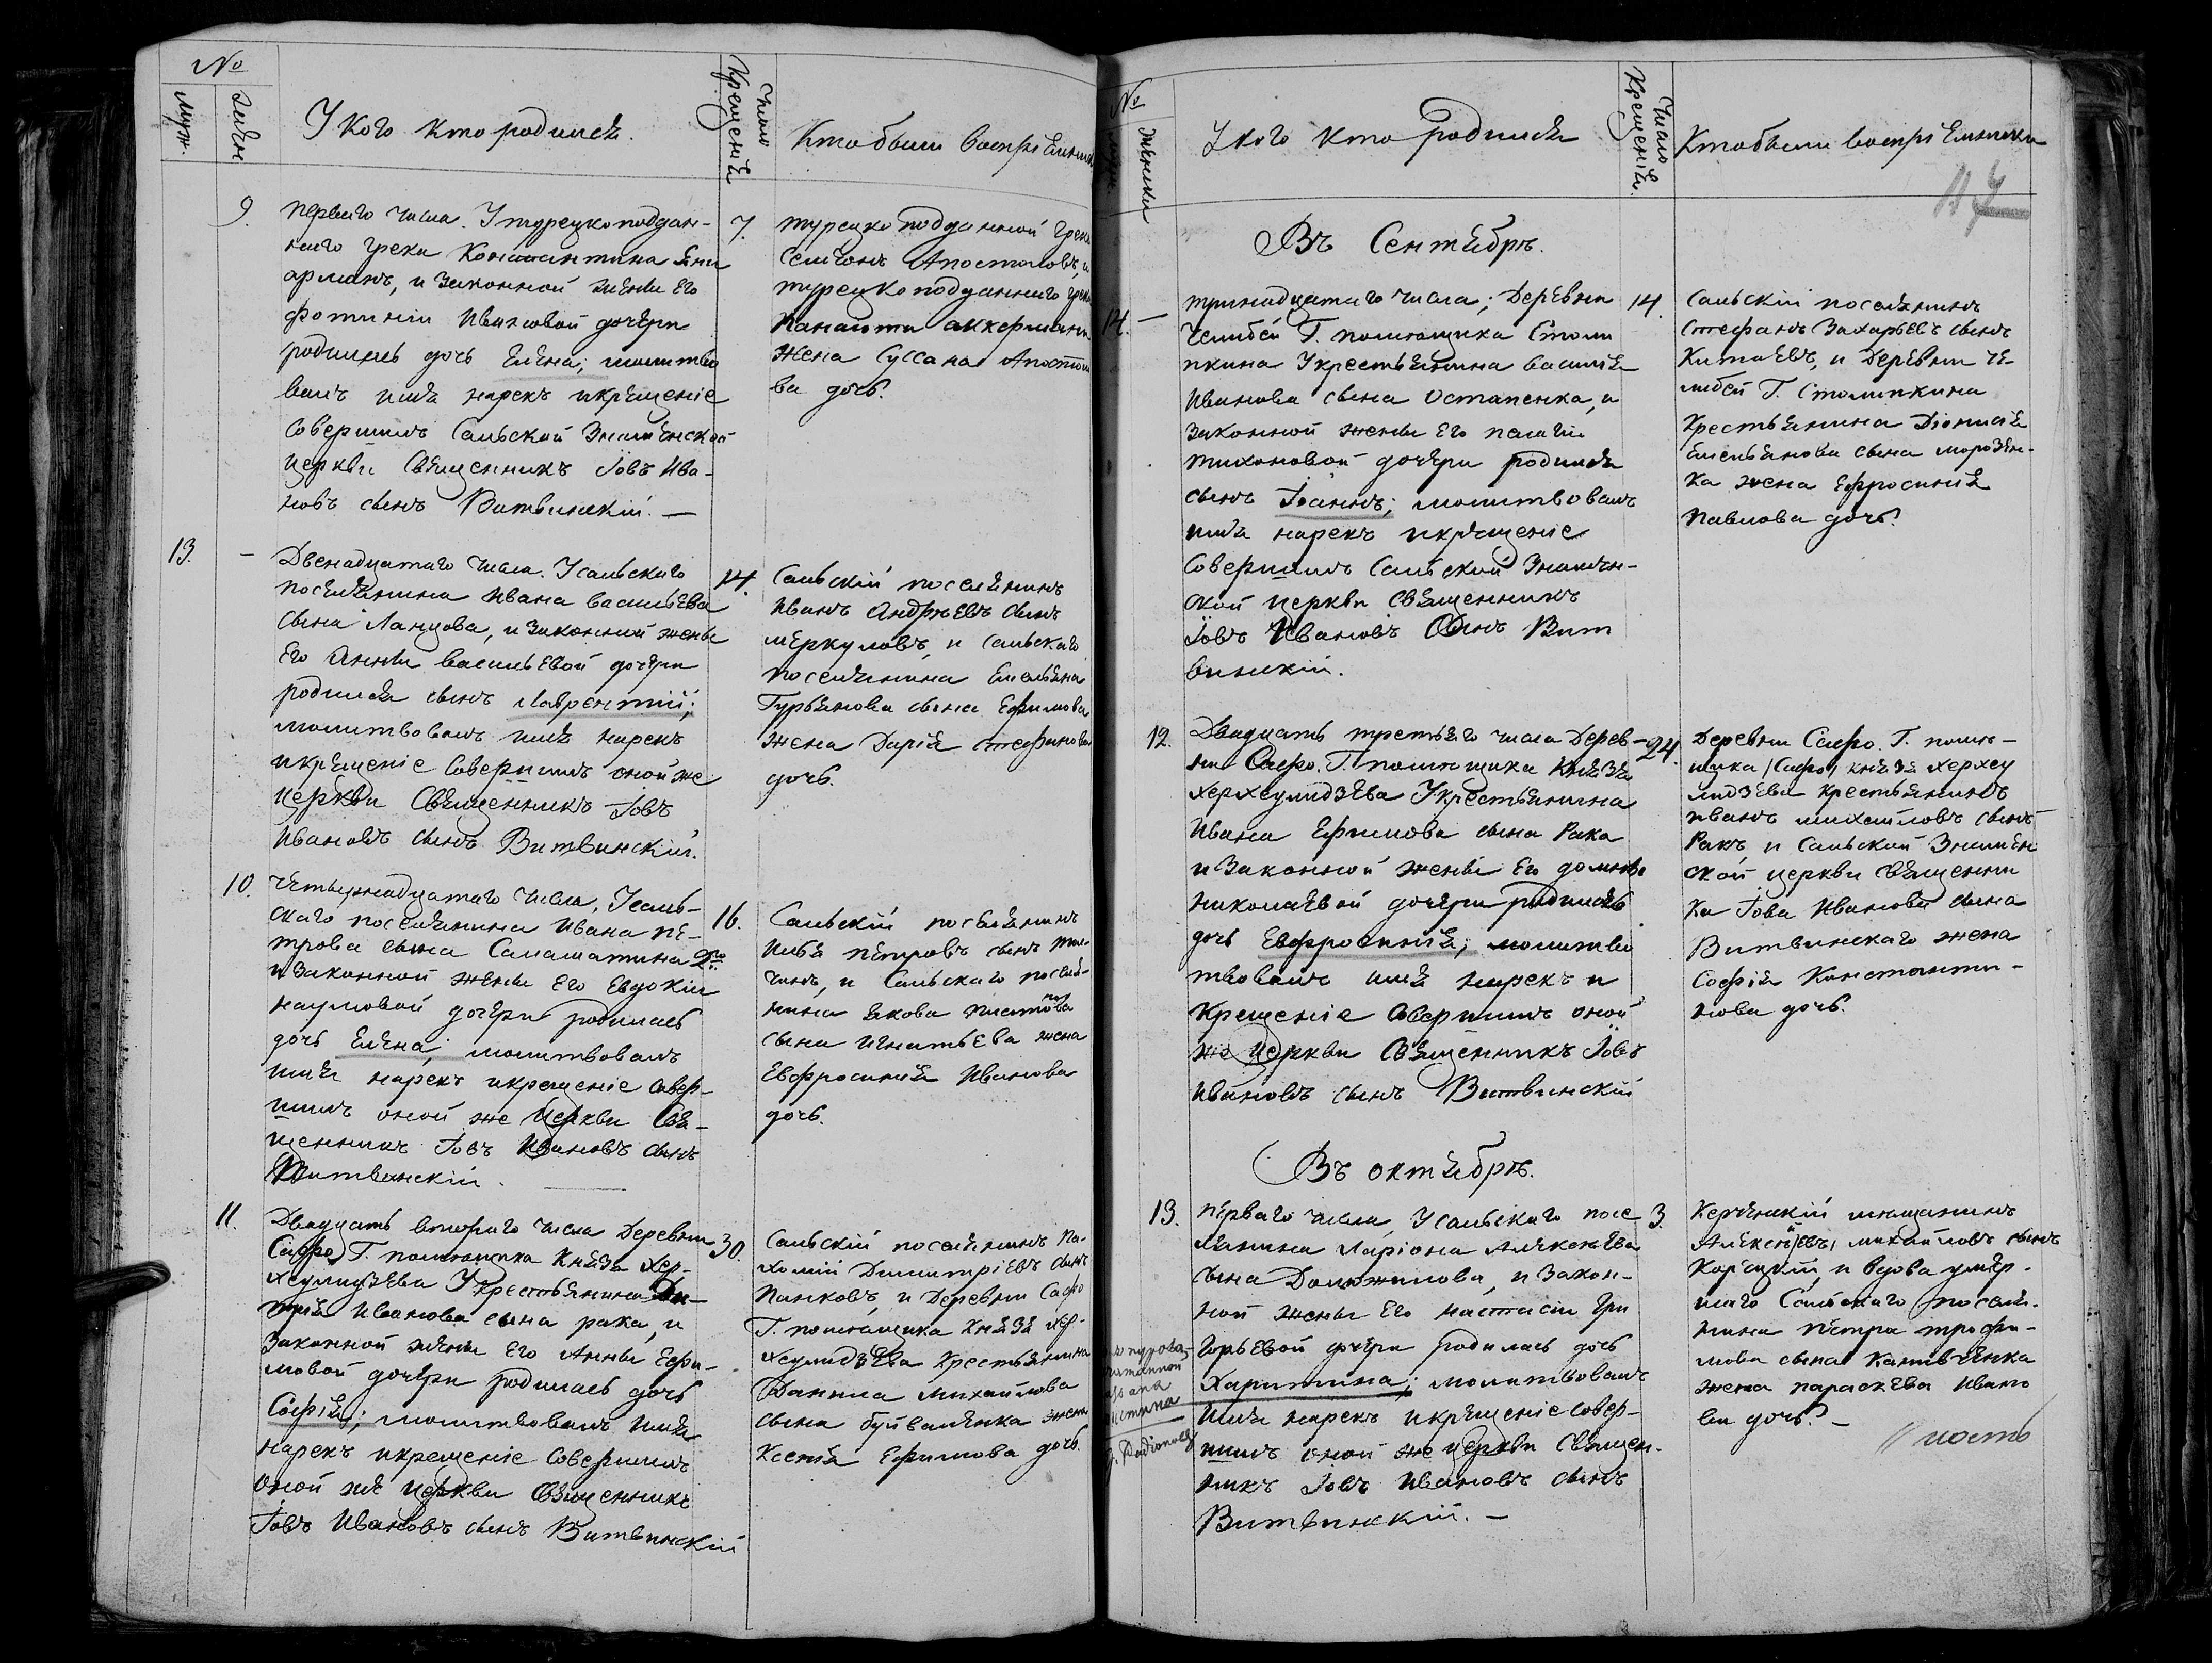 №
Муж.
Жен
У кого кто родился.
Число Крещенія
Кто были воспріемник
9.
Перваго числа. У турецкоподдан-
наго грека Константина Яни
арманъ, и законной жены его
Фотиніи Ивановой дочери
родилась дочь Елена; молитво
валъ имя нарекъ и крещеніе
совершилъ Сальской Знаменской
церкви Священникъ Іовъ Ива-
новъ сынъ Витвинскій. —
7.
турецко подданной грекъ
Апостоловъ, и
турецко поданнаго грека
Панаіоти аккермани
жена Суссана Апостоло
ва дочь.
13.
—
Двенадцатаго числа. У сальскаго
поселянина Ивана Васильева
сына Ланцова, и законной жены
его Анны Васильевой дочери
родился сынъ Лаврентій;
молитвовалъ имя нарекъ
и крещеніе совершилъ оной же
церкви Священникъ Іовъ
Ивановъ сынъ Витвинскій.
14.
Сальскій поселянинъ
Иванъ Андрѣевъ сынъ
Меркуловъ, и сальскаго
поселянина Емельяна
Гурьянова сына Ефимова
жена Дарія Стефанова
дочь.
10.
Четырнадцатаго числа. У саль-
скаго поселянина Ивана Пе-
трова сына Саламатина 2го
и законной жены его Евдокіи
Наумовой дочери родилась
дочь Елена; молитвовалъ
имя нарекъ и крещеніе совер-
шилъ оной же церкви Свя-
щенникъ Іовъ Ивановъ сынъ
Витвинскій.
16.
Сальскій поселянинъ
Илья Петровъ сынъ
чинъ, и Сальскаго поселя-
нина Якова
сына Игнатьева жена
Евфросинія Иванова
дочь.
11.
Двадцать втораго числа Деревни
Сафро, Г. помѣщика Князя Хер-
хеулидзѣва У крестьянина Дми-
трія Иванова сына Рака, и
законной жены его Анны Ефи-
мовой дочери родилась дочь
Софія; молитвовалъ имя
нарекъ и крещеніе совершилъ
оной же церкви Священникъ
Іовъ Ивановъ сынъ Витвинскій
30.
Сальскій поселянинъ Па-
хомій Димитріевъ сынъ
Панковъ, и Деревни Сафро
Г. помѣщика Князя Хер-
хеулидзѣва крестьянина
Данила Михайлова
сына Буйваленка жена
Ксенія Ефимова дочь.
№
Муж.
Женска
У кого кто родился
Число Крещенія.
Кто были воспріемники
117
Въ Сентябрѣ.
14.
—
тринадцатаго числа; Деревни
Челибей Г. помѣщика Столи
пкина У крестьянина Василія
Иванова сына Остапенка, и
законной жены его Пелагіи
Тихоновой дочери родился
сынъ Іоаннъ; молитвовалъ
имя нарекъ и крещеніе
совершилъ сальской Знамен-
ской церкви Священникъ
Іовъ Ивановъ Сынъ Вит
винскій.
14.
Сальскій поселянинъ
Стефанъ Захарьевъ сынъ
Китаевъ, и Деревни Че-
либей Г. Столипкина
Крестьянина Діонисія
Емельянова сына Морозен-
ка жена Ефросинія
Павлова дочь.
12.
Двадцать третьяго числа Дерев-
ни Сафро. Г. помѣщика Князя
Херхеулидзѣва У крестьянина
Ивана Ефимова сына Рака
и законной жены его Домны
Николаевой дочери родилась
дочь Евфросинія; молитво
твовалъ имя нарекъ и
Крещеніе совершилъ оной
же церкви Священникъ Іовъ
Ивановъ сынъ Витвинскій
24.
Деревни Сафро. Г. помѣ-
щика /Сафро/ князя Херхеу
лидзѣва крестьянинъ
Иванъ Михайловъ сынъ
Ракъ и Сальской Знамен
ской церкви Священни
ка Іова Иванова сына
Витвинскаго жена
Софія Константи-
нова дочь.
Въ октябрѣ.
13.
Перваго числа, У сальскаго посе
лянина Ларіона Алексѣева
сына Должикова, и закон-
ной жены его Настасіи Гри
горьевой дочери родилась дочь
Харитина; молитвовалъ
имя нарекъ и крещеніе совер-
шилъ оной же церкви Священ-
никъ Іовъ Ивановъ сынъ
Витвинскій. —
3.
Керченскій мещанинъ
Алексѣй Михайловъ сынъ
Корецкій, и вдова умер-
шаго Сальскаго поселя-
нина Петра Трофи-
мова сына
жена Параскева Ивано
ва дочь. —